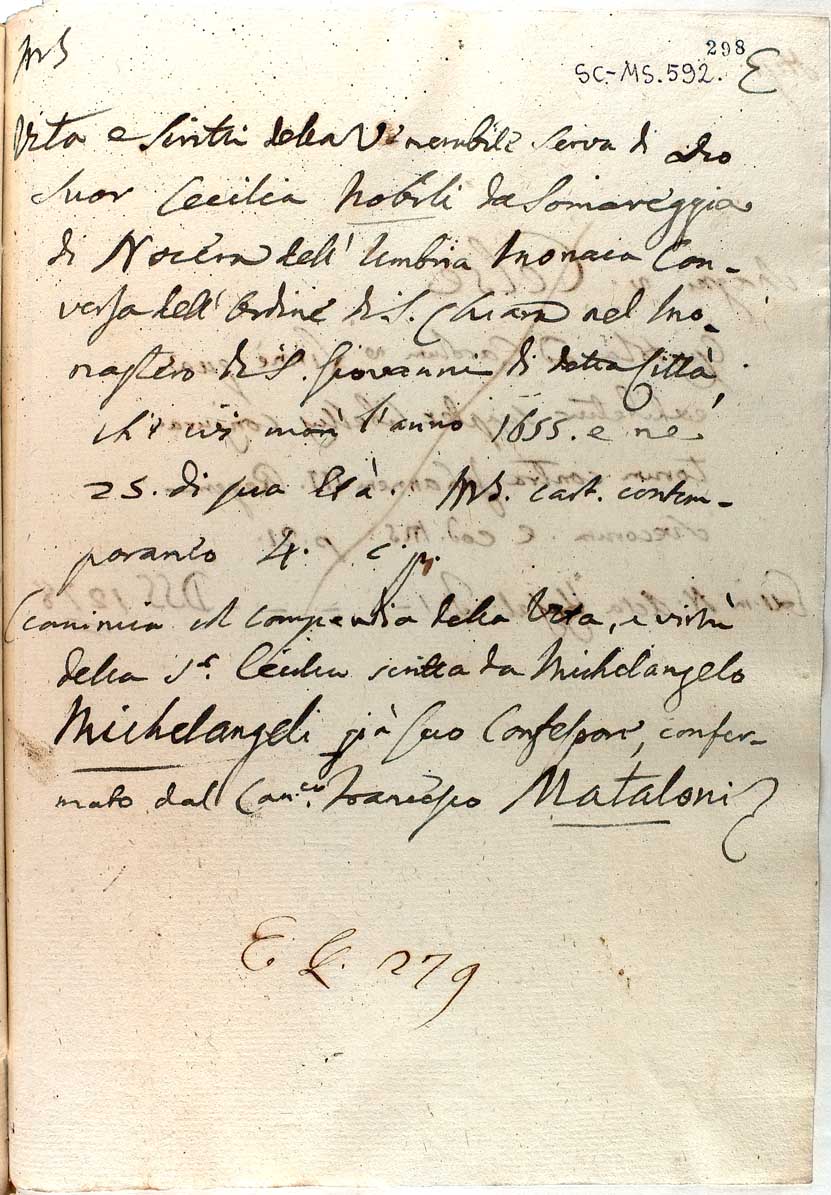 298
MS
SC-MS. 592. E
Vita e Scritti della Venerabile Serva di Dio
Suor Cecilia Nobili da Somareggia
di Nocera dell' Umbria Monaca Con-
versa dell' Ordine di S. Chiara nel Mo-
nastero di S. Giovanni di detta Città,
che ivi morì l'anno 1655. e ne
25. di sua Età. MS. cart. contem-
poraneo 4. c. p.
(comincia col compendio della Vita, e virtù
della Sr. Cecilia scritta da Michelangelo
Michelangeli già suo Confessore, confer-
mato dal Can.co Francesco Mataloni)
E L. 279